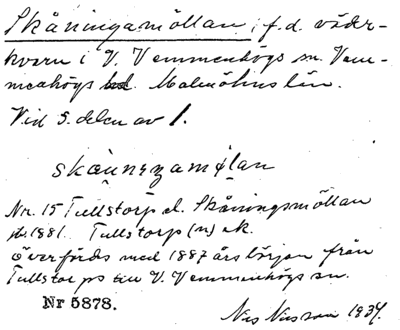 Skåningamöllan, f.d. väder-
kvarn i V. Vemmenhögs sn. Vem-
menhögs hd. Malmöhus län.
Vid S. delen av 1.
Nr. 15 Tullstorp el. Skåningsmöllan
1881. Tullstorp (n) ek.
Överförds med 1887 års början från
Tullstorps till V. Vemmenhögs sn.
Nr 5878.
1934.